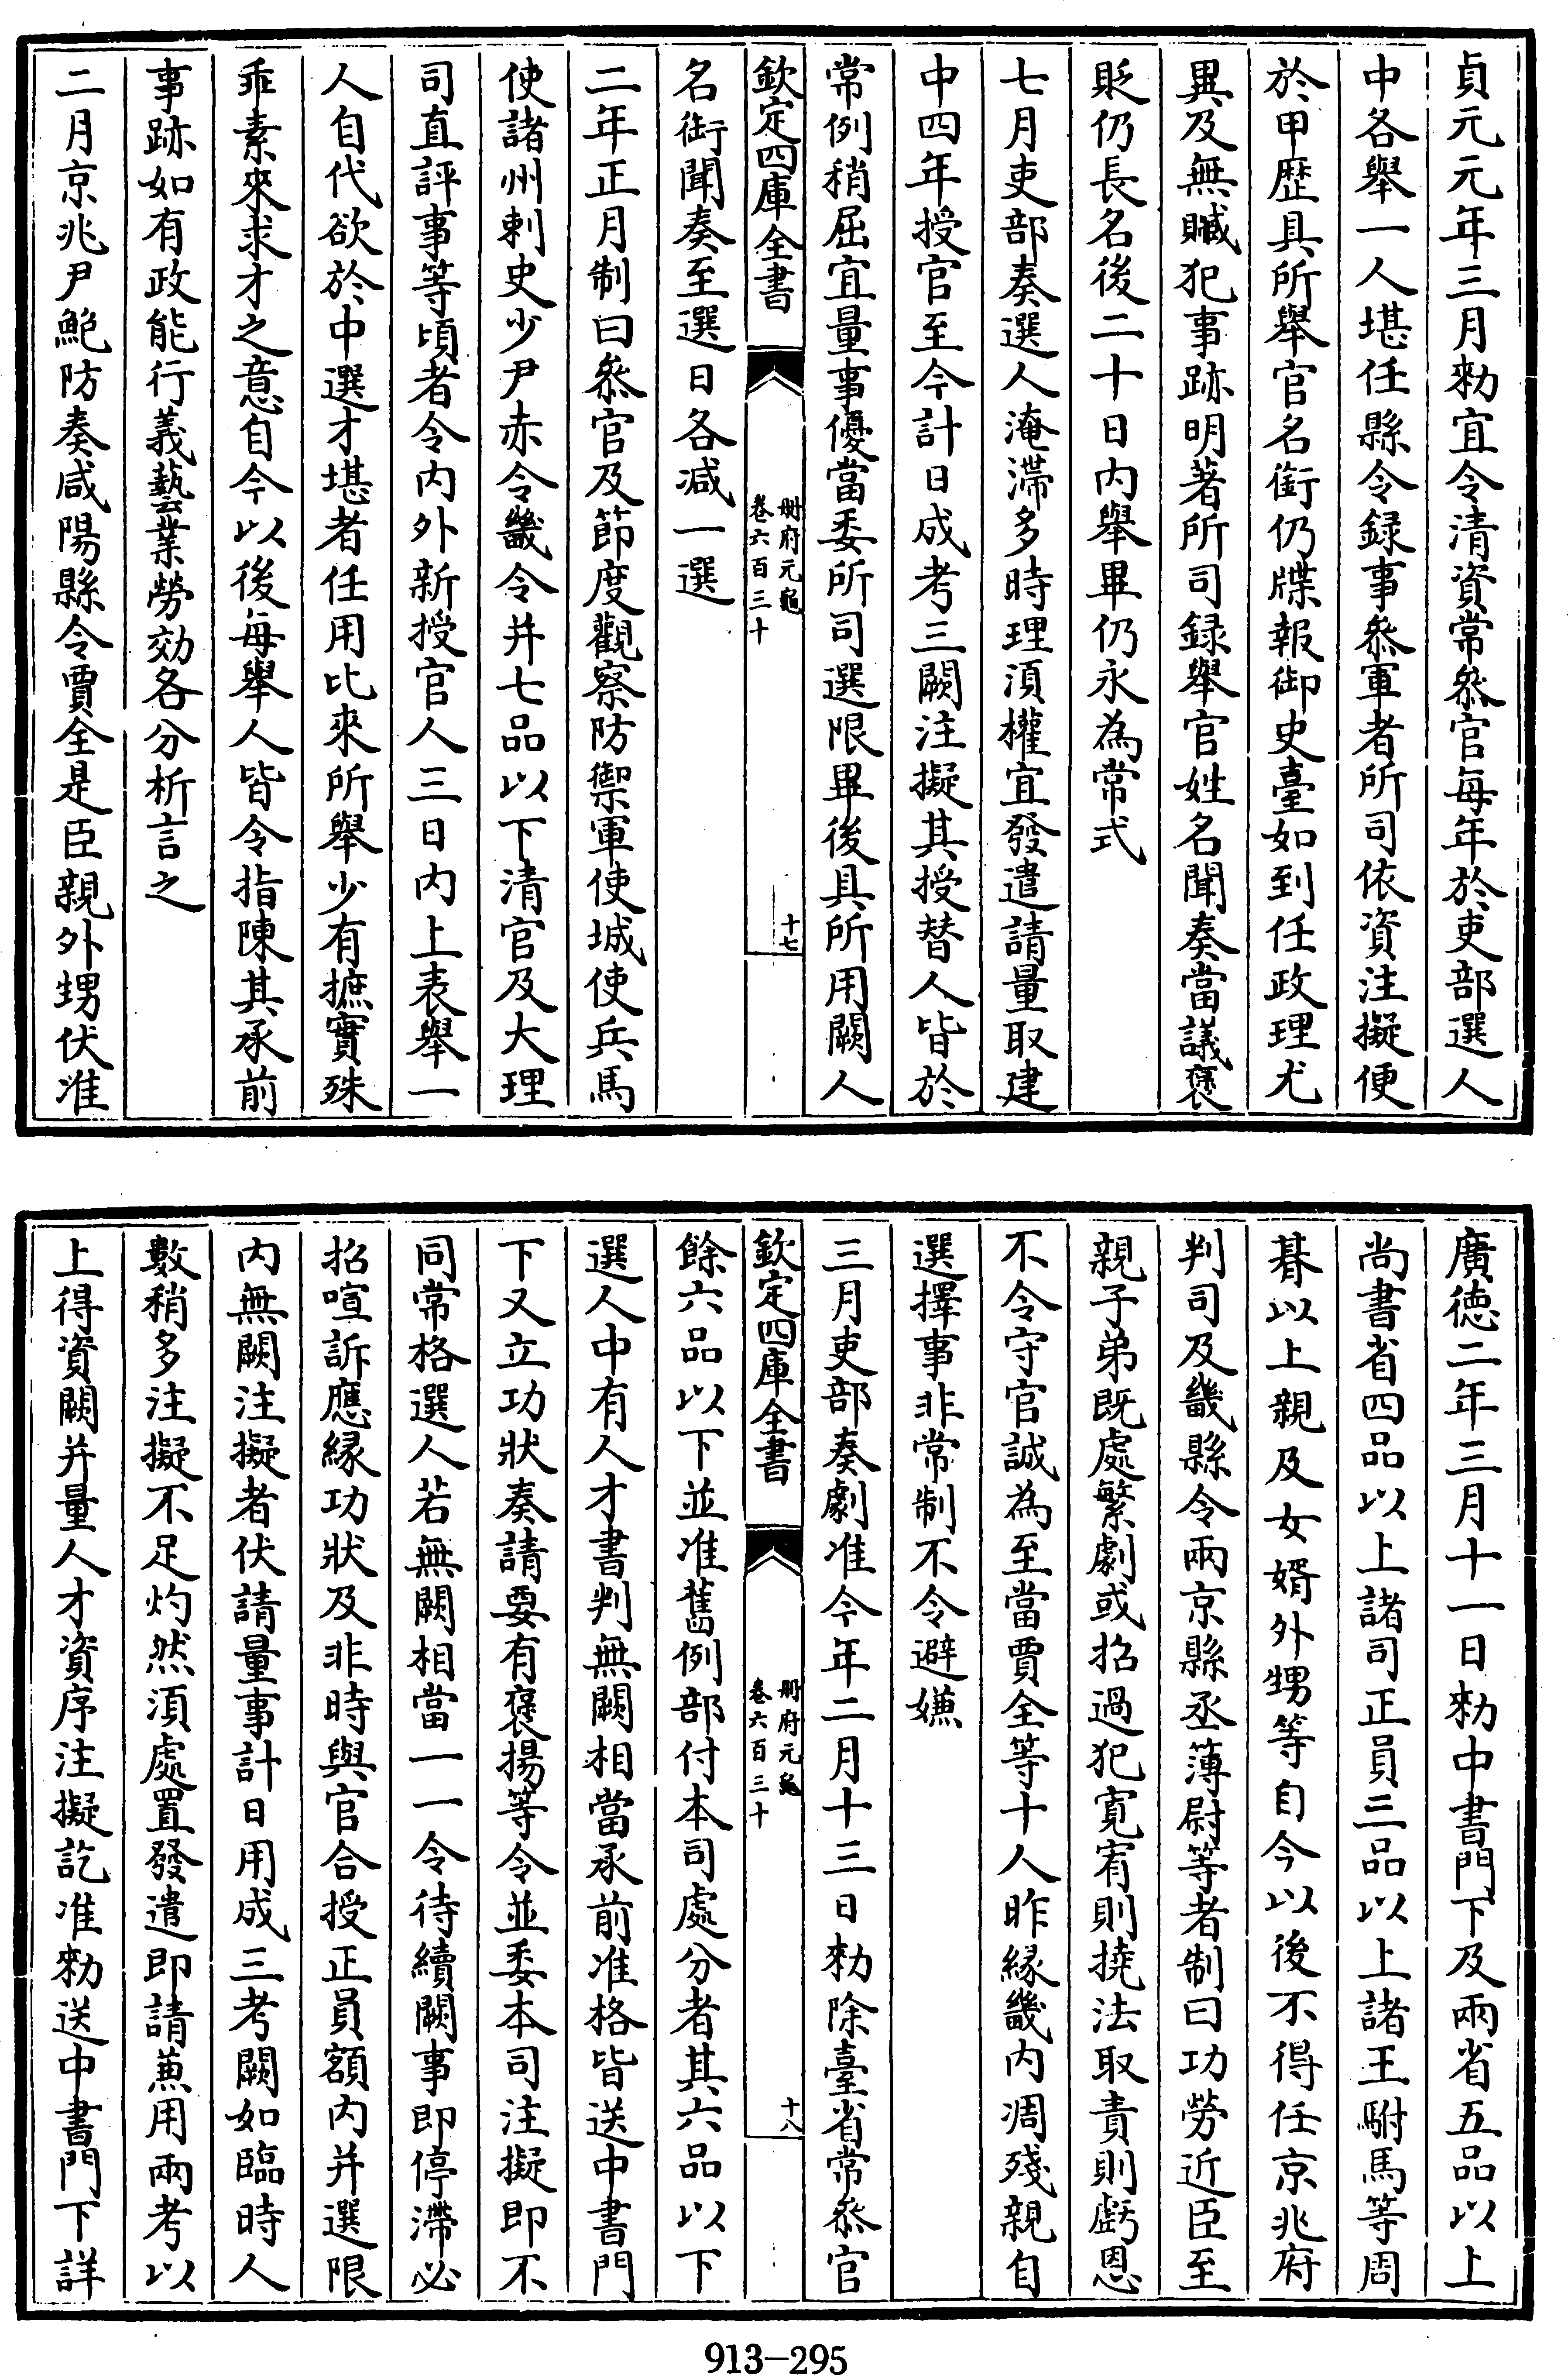 貞元元年三月勑宜令清資常叅官每年於吏部選人
中各舉一人堪任縣令録事叅軍者所司依資注擬便
於甲歴具所舉官名銜仍牒報御史臺如到任政理尤
異及無贓犯事跡明著所司録舉官姓名聞奏當議褒
貶仍長名後二十日内舉畢仍永為常式
七月吏部奏選人淹滯多時理湏權宜發遣請量取建
中四年授官至今計日成考三闕注擬其授替人皆於
常例稍屈宜量事優當委所司選限畢後具所用闕人
欽定四庫全書
冊府元龜
卷六百三十
十七
名銜聞奏至選日各減一選
二年正月制曰叅官及節度觀察防禦軍使城使兵馬
使諸州刺史少尹赤令畿令并七品以下清官及大理
司直評事等頃者令内外新授官人三日内上表舉一
人自代欲於中選才堪者任用比來所舉少有摭實殊
乖素來求才之意自今以後每舉人皆令指陳其承前
事跡如有政能行義藝業勞効各分析言之
二月京兆尹鮑防奏咸陽縣令賈全是臣親外甥伏准
廣徳二年三月十一日勑中書門下及兩省五品以上
尚書省四品以上諸司正員三品以上諸王駙馬等周
朞以上親及女婿外甥等自今以後不得任京兆府
判司及畿縣令兩京縣丞簿尉等者制曰功勞近臣至
親子弟既處繁劇或招過犯寛宥則撓法取責則虧恩
不令守官誠為至當賈全等十人昨縁畿内凋殘親自
選擇事非常制不令避嫌
三月吏部奏劇准今年二月十三日勑除臺省常叅官
欽定四庫全書
冊府元龜
卷六百三十
十八
餘六品以下並准舊例部付本司處分者其六品以下
選人中有人才書判無闕相當承前准格皆送中書門
下又立功狀奏請要有褒揚等令並委本司注擬即不
同常格選人若無闕相當一一令待續闕事即停滯必
招喧訴應縁功狀及非時與官合授正員額内并選限
内無闕注擬者伏請量事計日用成三考闕如臨時人
數稍多注擬不足灼然湏處置發遣即請兼用兩考以
上得資闕并量人才資序注擬訖准勑送中書門下詳
913-295